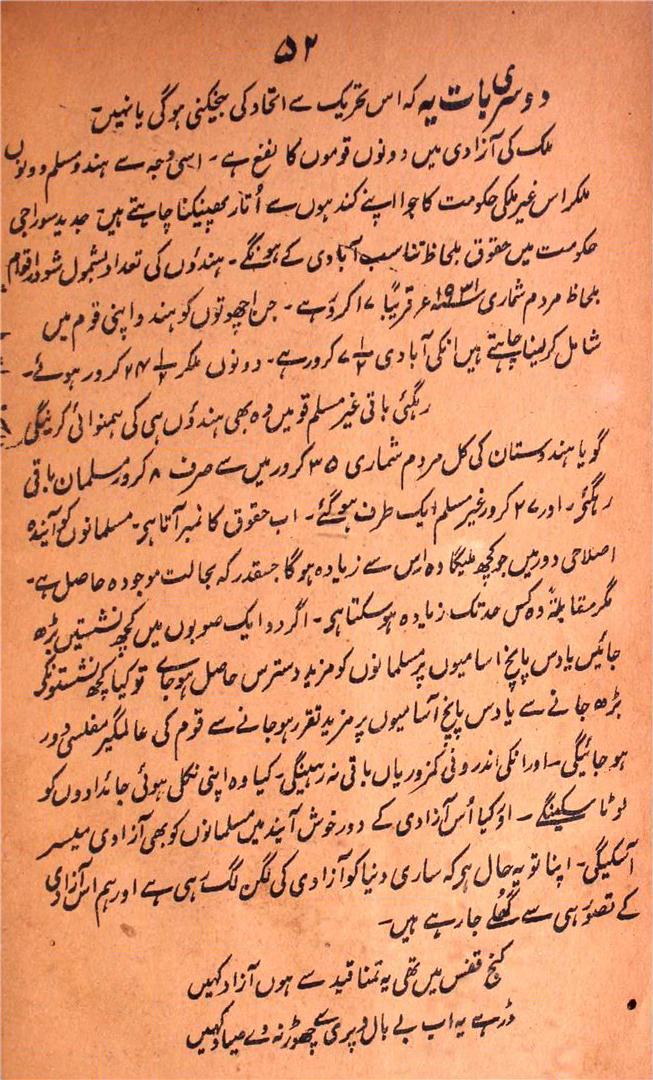 ۵۲
دوسری بات یہ کہ اس تحریک سے اتحاد کی بیخکنی ہوگی یا نہیں۔
ملک کی آزادی میں دونوں قوموں کا نفع ہے۔ اسی وجہ سے ہندو مسلم دونوں
ملکر اس غیر ملکی حکومت کا جوا اپنے کندہوں سے اُتار پھینکنا چاہتے ہیں۔ جدید سوراجی
حکومت میں حقوق بلحاظ تناسب آبادی کے ہونگے۔ ہندوٗں کی تعداد بشمول شودر اقوام
بلحاظ مردم شماری ۱۹۳۱ء قریباً ۱۷ کروڑ ہے۔ جن اچھوتوں کو ہندو اپنی قوم میں
شامل کرلینا چاہتے ہیں انکی آبادی ۷½ کرور ہے۔ دونوں ملکر ۲۴½ کرور ہوئے۔
رہگئی باقی غیر مسلم قومیں وہ بھی ہندوٗں ہی کی ہمنوائی کرینگی
گویا ہندوستان کی کل مردم شماری ۳۵ کرور میں سے صرف ۸ کرور مسلمان باقی
رہگئے۔ اور ۲۷ کرور غیر مسلم ایک طرف ہوگئے۔ اب حقوق کا نمبر آتا ہی۔ مسلمانوں کو آیندہ
اصلاحی دور میں جو کچھ ملیگا وہ اِس سے زیادہ ہوگا جسقدر کہ بحالت موجودہ حاصل ہے۔
مگر مقابلۃً وہ کس حد تک زیادہ ہو سکتا ہی۔ اگر دو ایک صوبوں میں کچھ نشستیں بڑھ
جائیں یا دس پانچ اسامیوں پر مسلمانوں کو مزید دسترس حاصل ہو جاے تو کیا کچھ نشستونکے
بڑھ جانے سے یا دس پانچ آسامیوں پر مزید تقرر ہو جانے سے قوم کی عالمگیر مفلسی دور
ہو جائیگی۔ اور انکی اندرونی کمزوریاں باقی نہ رہینگی۔ کیا وہ اپنی نکلی ہوئی جائدادوں کو
لوٹا سکینگے۔ اور کیا اُس آزادی کے دور خوش آیند میں مسلمانوں کو بھی آزادی میسر
آسکیگی۔ اپنا تو یہ حال ہی کہ ساری دنیا کو آزادی کی لگن لگ رہی ہے اور ہم اس آزادی
کے تصور ہی سے گُھلے جا رہے ہیں۔
کنج قفس میں تھی یہ تمنا قید سے ہوں آزاد کہیں
ڈر ہے یہ اب بے بال و پری سے چھوڑ نہ دے صیاد کہیں